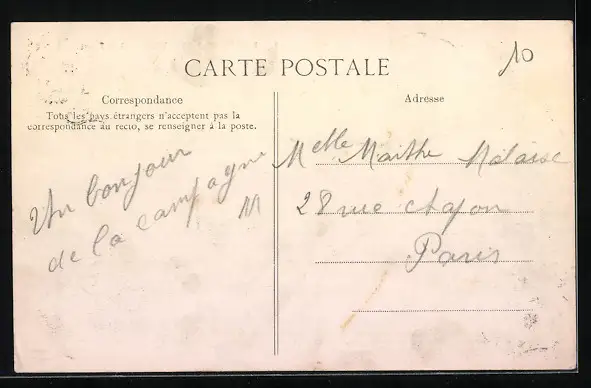 10
CARTE POSTALE
Correspondance
Tous les pays étrangers n'acceptent pas la
correspondance au recto, se renseigner à la poste.
Un bonjour
de la campagne
M
Adresse
Melle Marthe Malaise
28 rue
Paris